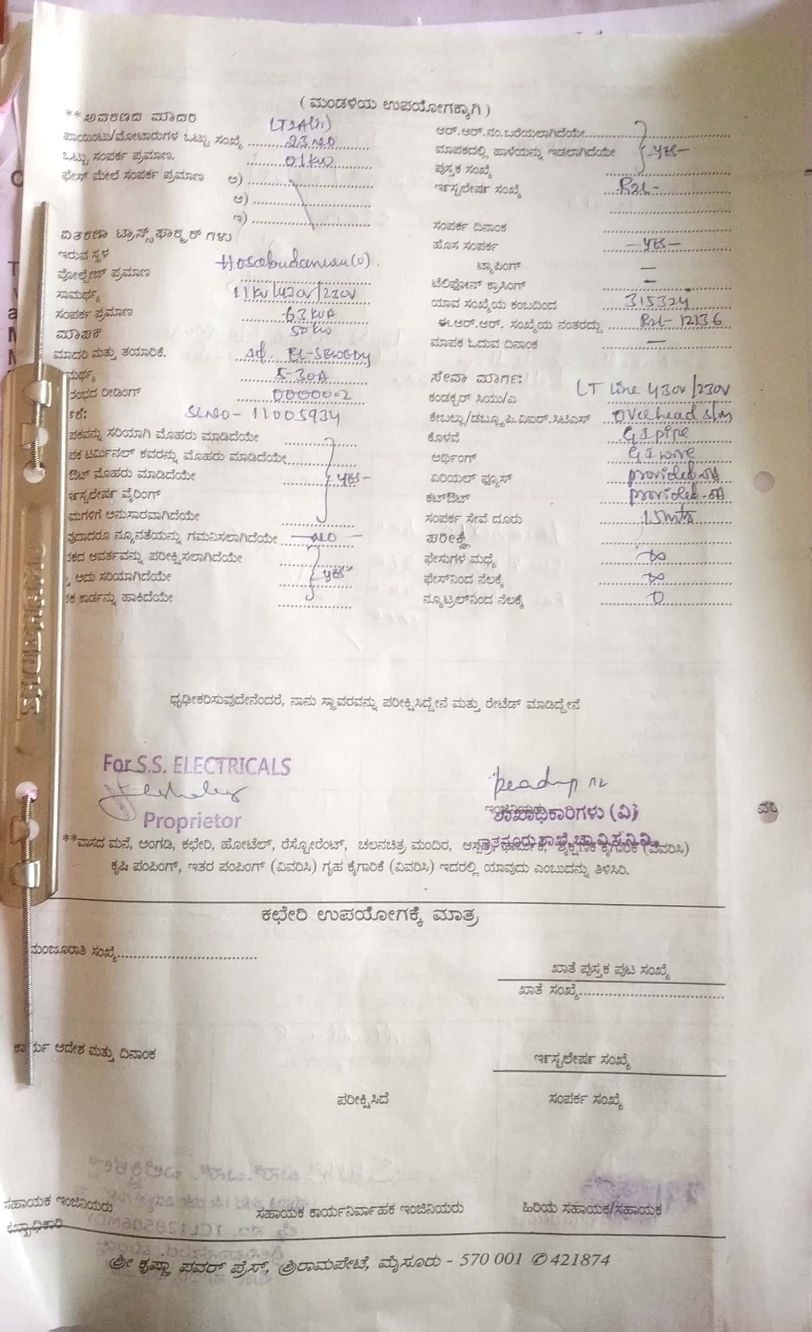 ( ಮಂಡಳಿಯ ಉಪಯೋಗಕ್ಕಾಗಿ )
**ಆವರಣದ ಮಾದರಿ LT2A(ii)
ಪಾಯಿಂಟು/ಮೋಟಾರುಗಳ ಒಟ್ಟು ಸಂಖ್ಯೆ
ಒಟ್ಟು ಸಂಪರ್ಕ ಪ್ರಮಾಣ. 01 KW
ಫೇಸ್ ಮೇಲೆ ಸಂಪರ್ಕ ಪ್ರಮಾಣ ಅ)
ಆ)
ಇ)
ವಿತರಣಾ ಟ್ರಾನ್ಸ್‌ಫಾರ್ಮರ್ ಗಳು
ಇರುವ ಸ್ಥಳ
ವೋಲ್ಟೇಜ್ ಪ್ರಮಾಣ 11KV/430V/220V
ಸಾಮರ್ಥ್ಯ 63 KVA
ಸಂಪರ್ಕ ಪ್ರಮಾಣ 50 KW
ಮಾಪಕ
ಮಾದರಿ ಮತ್ತು ತಯಾರಿಕೆ.
ಮರ್ಥ್ಯ 5-30A
ತಂಭದ ರೀಡಿಂಗ್ 0000002
SLNO- 11005934
ಪಕವನ್ನು ಸರಿಯಾಗಿ ಮೊಹರು ಮಾಡಿದೆಯೇ
ಪಕ ಟರ್ಮಿನಲ್ ಕವರನ್ನು ಮೊಹರು ಮಾಡಿದೆಯೇ
ಔಟ್ ಮೊಹರು ಮಾಡಿದೆಯೇ -YES-
ಇನ್ಸ್ಟಲೇಷನ್ ವೈರಿಂಗ್
ಮಗಳಿಗೆ ಅನುಸಾರವಾಗಿದೆಯೇ
ವುದಾದರೂ ನ್ಯೂನತೆಯನ್ನು ಗಮನಿಸಲಾಗಿದೆಯೇ -NO-
ಕದ ಆವರ್ತವನ್ನು ಪರೀಕ್ಷಿಸಲಾಗಿದೆಯೇ
ಅದು ಸರಿಯಾಗಿದೆಯೇ -YES-
ಕ ಕಾರ್ಡನ್ನು ಹಾಕಿದೆಯೇ
ಆರ್.ಆರ್.ನಂ.ಬರೆಯಲಾಗಿದೆಯೇ
ಮಾಪಕದಲ್ಲಿ ಹಾಳೆಯನ್ನು ಇಡಲಾಗಿದೆಯೇ -YES-
ಪುಸ್ತಕ ಸಂಖ್ಯೆ
ಇನ್ಸ್ಟಲೇಷನ್ ಸಂಖ್ಯೆ
ಸಂಪರ್ಕ ದಿನಾಂಕ
ಹೊಸ ಸಂಪರ್ಕ -YES-
ಟ್ಯಾಪಿಂಗ್ -
ಟೆಲಿಫೋನ್ ಕ್ರಾಸಿಂಗ್ -
ಯಾವ ಸಂಖ್ಯೆಯ ಕಂಬದಿಂದ
ಈ.ಆರ್.ಆರ್. ಸಂಖ್ಯೆಯ ನಂತರದ್ದು
ಮಾಪಕ ಓದುವ ದಿನಾಂಕ -
ಸೇವಾ ಮಾರ್ಗ:
ಕಂಡಕ್ಟರ್ ಸಿಯು/ಎ LT line 430V/230V
ಕೇಬಲ್ಲು/ಡಬ್ಲ್ಯೂ.ಪಿ.ಐಆರ್.ಸಿಟಿಎಸ್ overhead
ಕೊಳವೆ GI pipe
ಅರ್ಥಿಂಗ್ GI wire
ಏರಿಯಲ್ ಫ್ಯೂಸ್ provided-5A
ಕಟ್‌ಔಟ್ provided-5A
ಸಂಪರ್ಕ ಸೇವೆ ದೂರು 15mts
ಪರೀಕ್ಷೆ
ಫೇಸುಗಳ ಮಧ್ಯೆ ∞
ಫೇಸ್‌ನಿಂದ ನೆಲಕ್ಕೆ ∞
ನ್ಯೂಟ್ರಲ್‌ನಿಂದ ನೆಲಕ್ಕೆ 0
ಧೃಢೀಕರಿಸುವುದೇನೆಂದರೆ, ನಾನು ಸ್ಥಾವರವನ್ನು ಪರೀಕ್ಷಿಸಿದ್ದೇನೆ ಮತ್ತು ರೇಟೆಡ್ ಮಾಡಿದ್ದೇನೆ
For S.S. ELECTRICALS
Proprietor
ಇಂಜಿನಿಯರು
ಶಾಖಾಧಿಕಾರಿಗಳು (ವಿ)
**ವಾಸದ ಮನೆ, ಅಂಗಡಿ, ಕಛೇರಿ, ಹೋಟೆಲ್, ರೆಸ್ಟೋರೆಂಟ್, ಚಲನಚಿತ್ರ ಮಂದಿರ, ಆಸ್ಪತ್ರೆ, ಕೈಗಾರಿಕೆ (ವಿವರಿಸಿ)
ಕೃಷಿ ಪಂಪಿಂಗ್, ಇತರ ಪಂಪಿಂಗ್ (ವಿವರಿಸಿ) ಗೃಹ ಕೈಗಾರಿಕೆ (ವಿವರಿಸಿ) ಇದರಲ್ಲಿ ಯಾವುದು ಎಂಬುದನ್ನು ತಿಳಿಸಿರಿ.
ಕಛೇರಿ ಉಪಯೋಗಕ್ಕೆ ಮಾತ್ರ
ಮಂಜೂರಾತಿ ಸಂಖ್ಯೆ
ಖಾತೆ ಪುಸ್ತಕ ಪುಟ ಸಂಖ್ಯೆ
ಖಾತೆ ಸಂಖ್ಯೆ
ಕಾರ್ಯ ಆದೇಶ ಮತ್ತು ದಿನಾಂಕ
ಇನ್ಸ್ಟಲೇಷನ್ ಸಂಖ್ಯೆ
ಪರೀಕ್ಷಿಸಿದೆ
ಸಂಪರ್ಕ ಸಂಖ್ಯೆ
ಸಹಾಯಕ ಇಂಜಿನಿಯರು
ಸಹಾಯಕ ಕಾರ್ಯನಿರ್ವಾಹಕ ಇಂಜಿನಿಯರು
ಹಿರಿಯ ಸಹಾಯಕ/ಸಹಾಯಕ
ಶ್ರೀ ಕೃಷ್ಣಾ ಪವರ್ ಪ್ರೆಸ್, ಶ್ರೀರಾಮಪೇಟೆ, ಮೈಸೂರು - 570 001 ✆ 421874